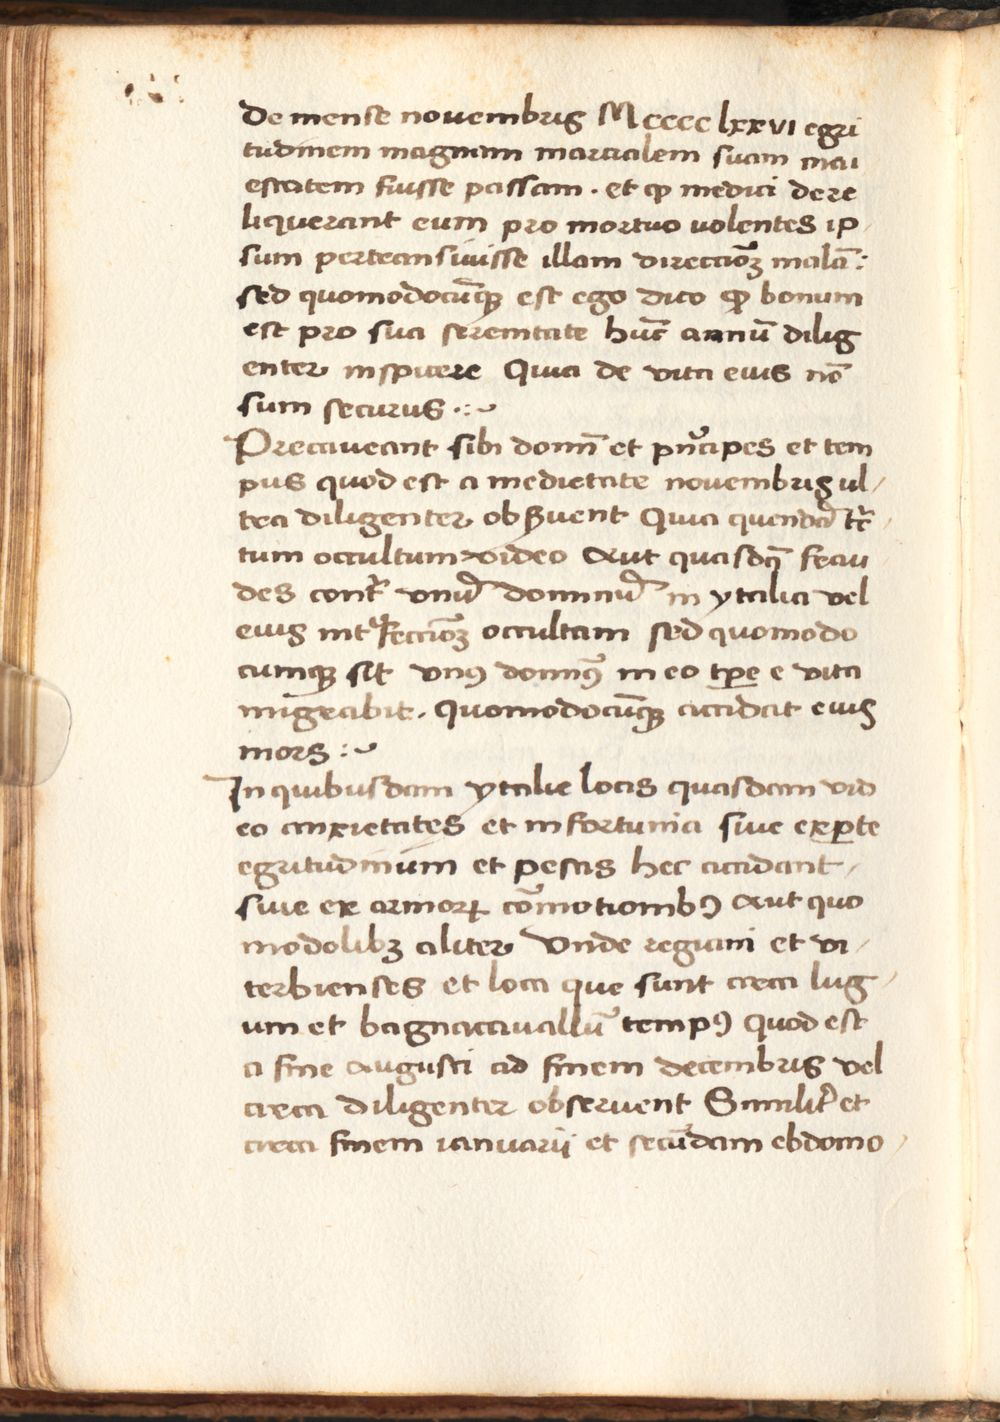 De mense novembris Mcccc lxxvi egri
tudinem magnam marcialem suam mai
estatem fuisse passam · et ꝙ medici dere
liquerant eum pro mortuo volentes ip-
sum pertransiuisse illam direccōꝫ malā :
sed quomodocūqꝫ est ego dico ꝙ bonum
est pro sua serenitate hūc annū dilig
enter inspicere Quia de vita eius nō
sum securus ·:~
Precaveant sibi domī et pncipes et tem
pus quod est a medietate novembris ul-
tra diligenter obẜuent Quia quendā tc̄
tum occultum video Aut quasdā frau
des cont͛ vnū dominū in ytalia vel
eius int͛feccōꝫ occultam sed quomodo
cumqꝫ sit vnꝰ dominꝰ in eo tꝑe e vita
migrabit · Quomodocūqꝫ accidat eius
mors :~
In quibusdam ytalie locis quasdam vid
eo anxietates et infortunia siue exꝑte
egritudinum et pestis hec accidant-
siue ex armoꝝ cōmotionibꝰ Aut quo
modolibꝫ aliter Vnde regiani et vi-
terbienses et loca que sunt circa lug-
um et bagnacauallū tempꝰ quod est
a fine Augusti ad finem decembris vel
circa diligenter observent Similit͛ et
circa finem ianuarii et secūdam ebdomo-